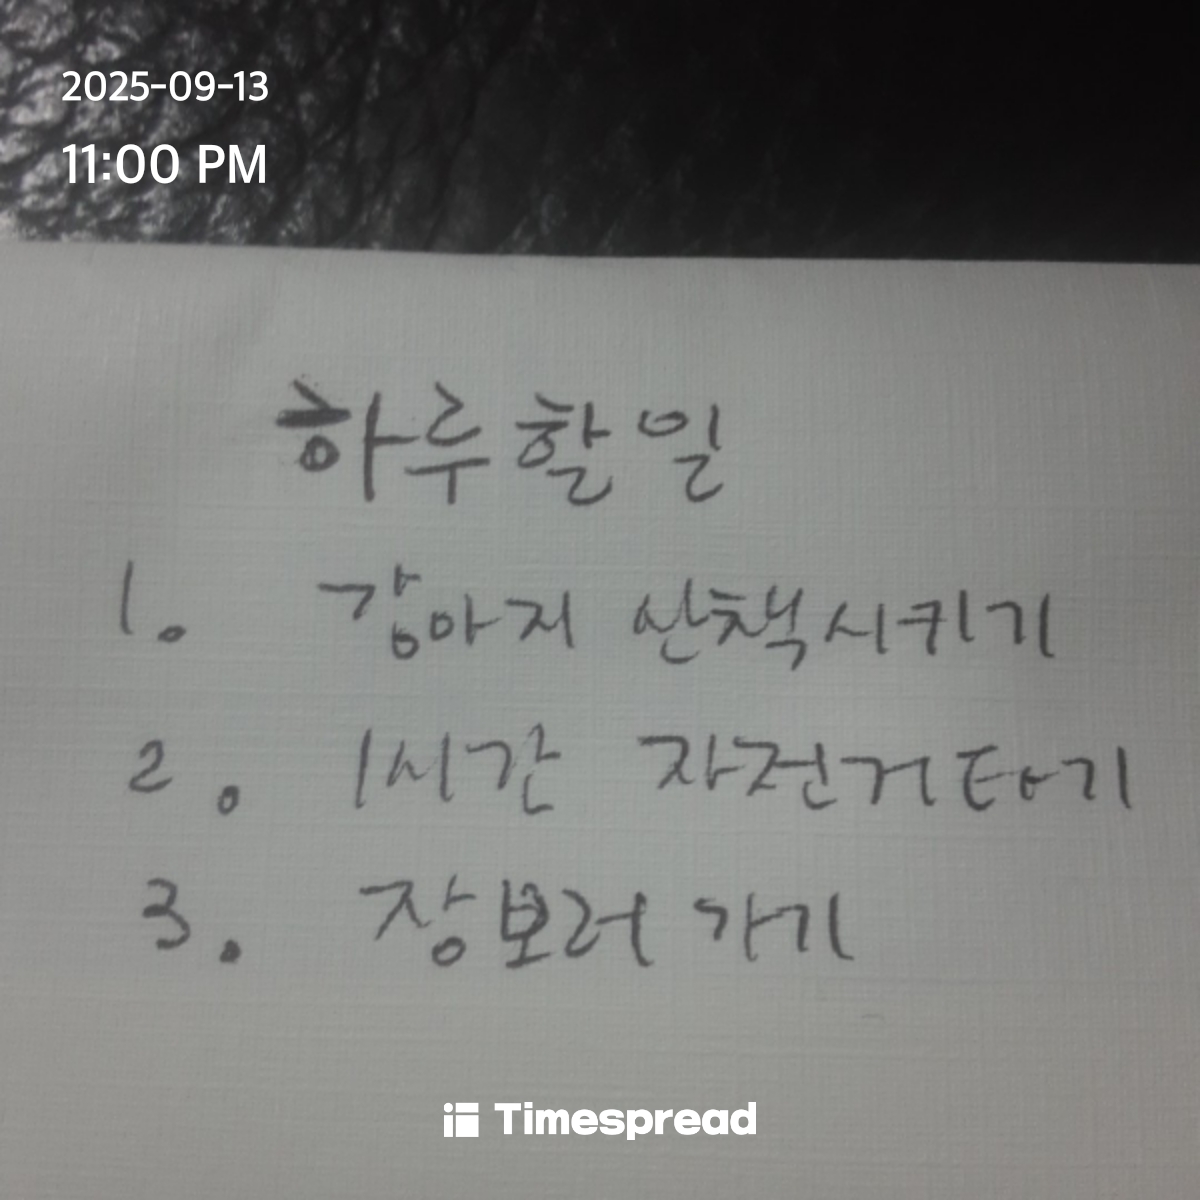 2025-09-13
11:00 PM
하루 할 일
1. 강아지 산책시키기
2. 1시간 자전거타기
3. 장보러 가기
Timespread